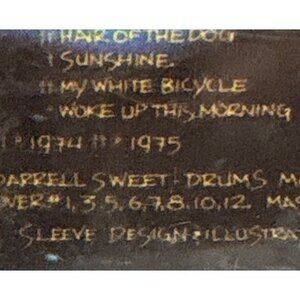 HAIR OF THE DOG
SUNSHINE.
MY WHITE BICYCLE
WOKE UP THIS MORNING
1974 1975
DARRELL SWEET: DRUMS
1, 3, 5, 6, 7, 8, 10, 12.
SLEEVE DESIGN: ILLUSTRA